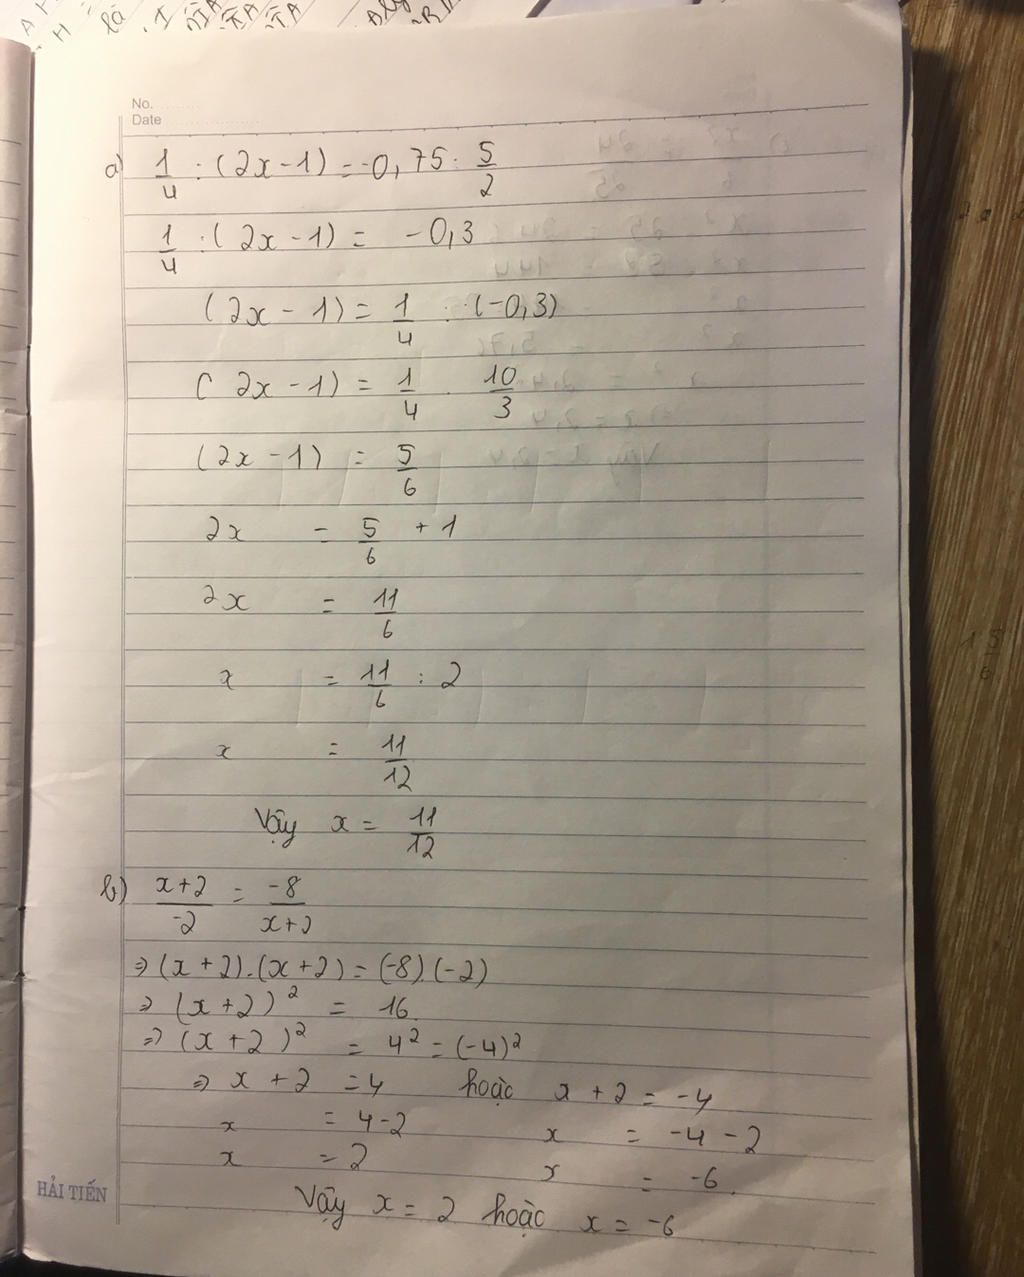 No.
Date
a) 1/4 : (2x-1) = -0,75 : 5/2
1/4 : (2x-1) = -0,3
(2x-1) = 1/4 : (-0,3)
(2x-1) = 1/4 . 10/3
(2x-1) = 5/6
2x = 5/6 + 1
2x = 11/6
x = 11/6 : 2
x = 11/12
Vậy x = 11/12
b) x+2/-2 = -8/x+2
⇒ (x+2).(x+2) = (-8).(-2)
⇒ (x+2)² = 16
⇒ (x+2)² = 4² = (-4)²
⇒ x+2 = 4 hoặc x+2 = -4
x = 4-2 x = -4-2
x = 2 x = -6.
Vậy x = 2 hoặc x = -6
HẢI TIẾN